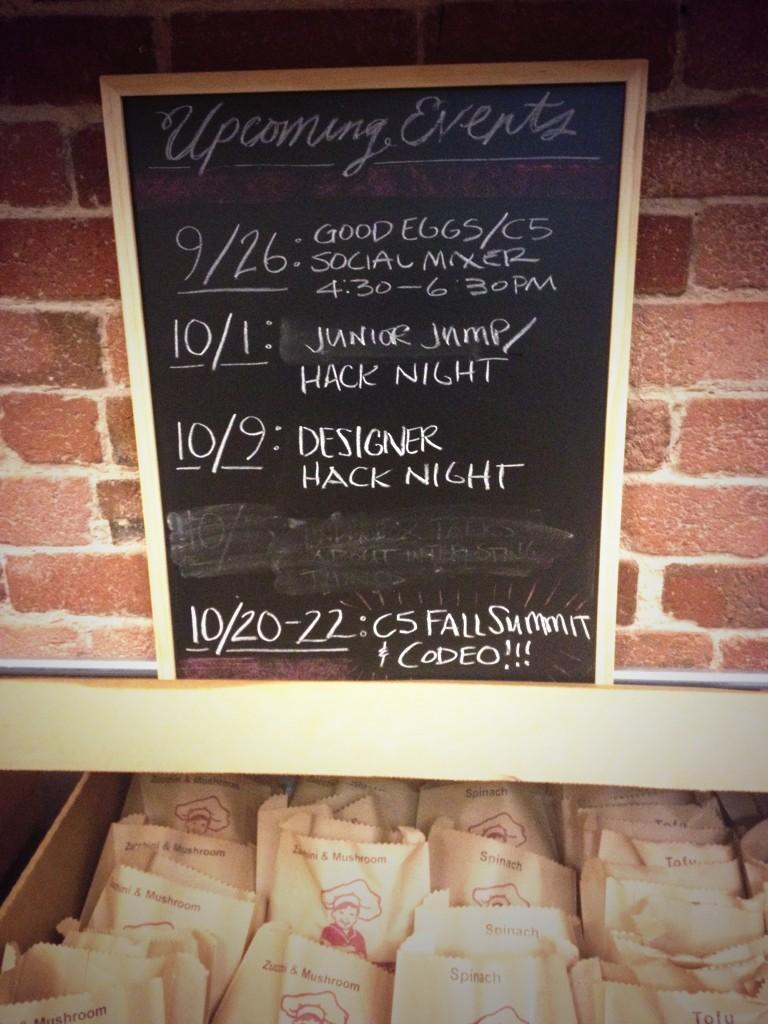 Upcoming Events
9/26: GOOD EGGS/C5
SOCIAL MIXER
4:30-6:30PM
10/1: JUNIOR JUMP/
HACK NIGHT
10/9: DESIGNER
HACK NIGHT
TALKS
ABOUT INTERESTING
10/20-22: C5 FALL SUMMIT
& CODEO!!!
Zucchini & Mushroom
Spinach
Zucchini & Mushroom
Zucchini & Mushroom
Spinach
Tofu
Tofu
Zucchini & Mushroom
Spinach
Zucchini & Mushroom
Spinach
Mushroom
Tofu